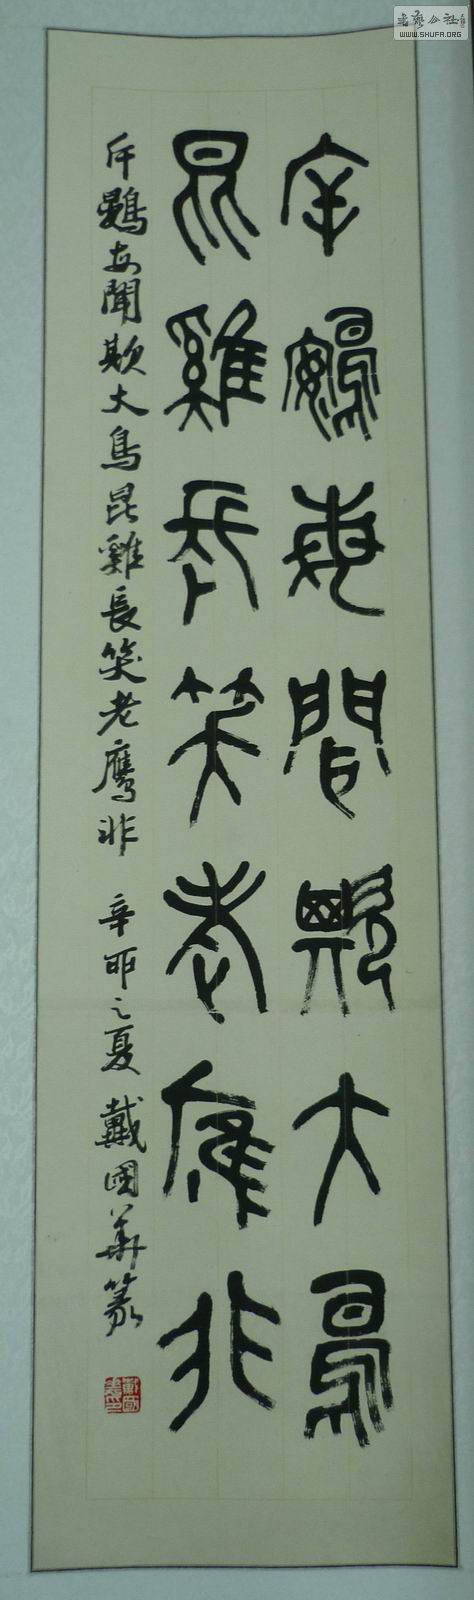 斥鷃每聞欺大鳥
昆雞長笑老鷹非
斥鷃每聞欺大鳥昆雞長笑老鷹非 辛卯之夏 戴國華篆
書藝公社
WWW.SHUFA.ORG